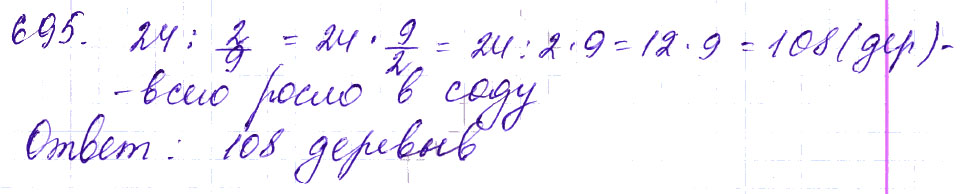 695. 24 : 2/9 = 24 · 9/2 = 24 : 2 · 9 = 12 · 9 = 108 (дер) -
- всего росло в саду
Ответ: 108 деревьев